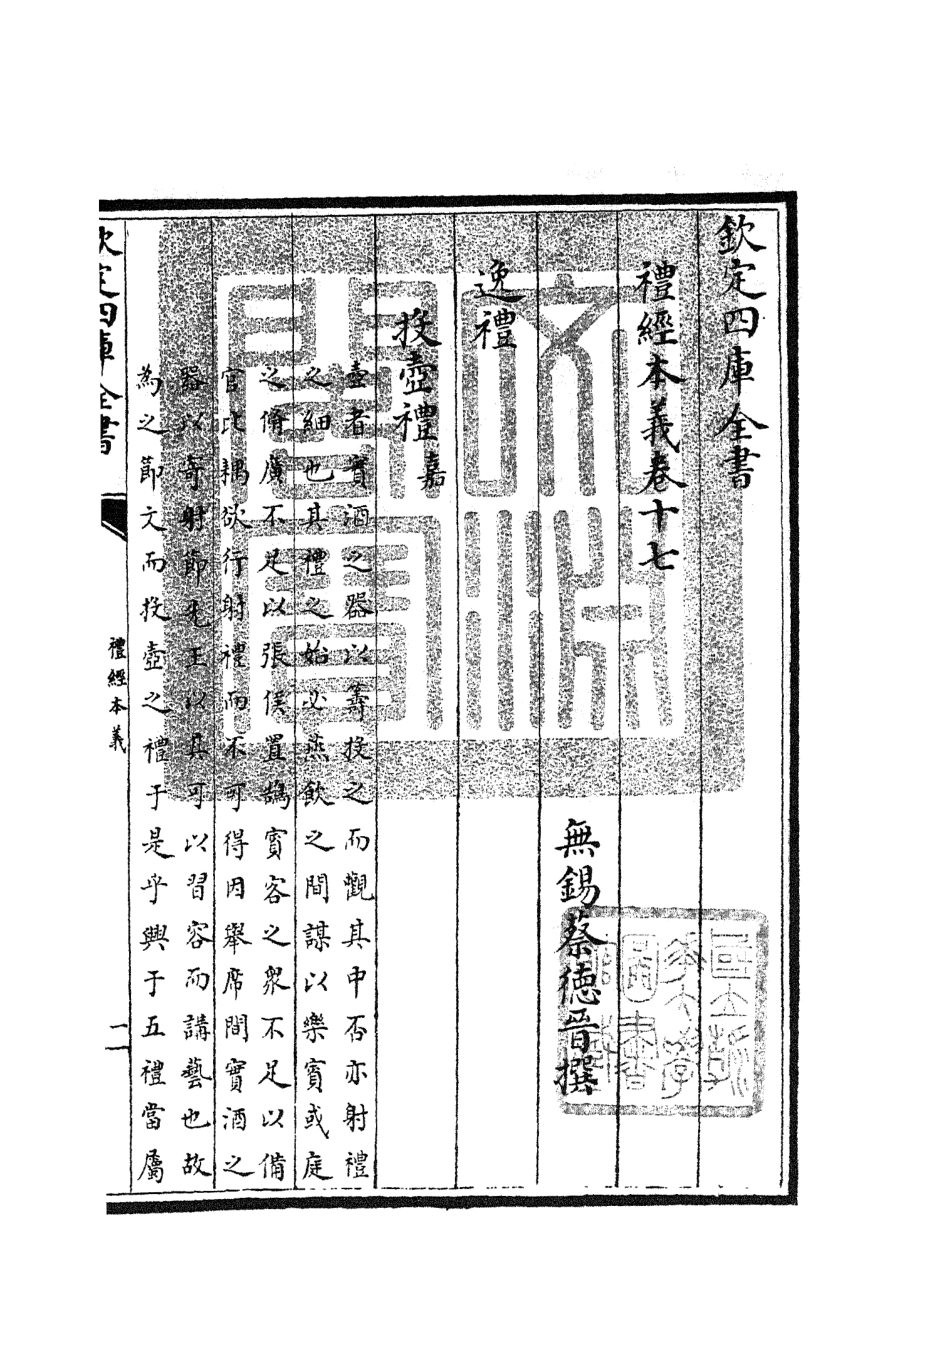 欽定四庫全書
禮經本義卷十七
無錫蔡德晉撰
逸禮
投壺禮嘉
壺者實酒之器以籌投之而觀其中否亦射禮
之細也其禮之始必燕飲之間謀以樂賓或庭
之脩廣不足以張侯置鵠賓客之衆不足以備
官比耦欲行射禮而不可得因舉席間實酒之
器以寄射節先王以其可以習容而講藝也故
為之節文而投壺之禮于是乎興于五禮當屬
欽定四庫全書
禮經本義
一